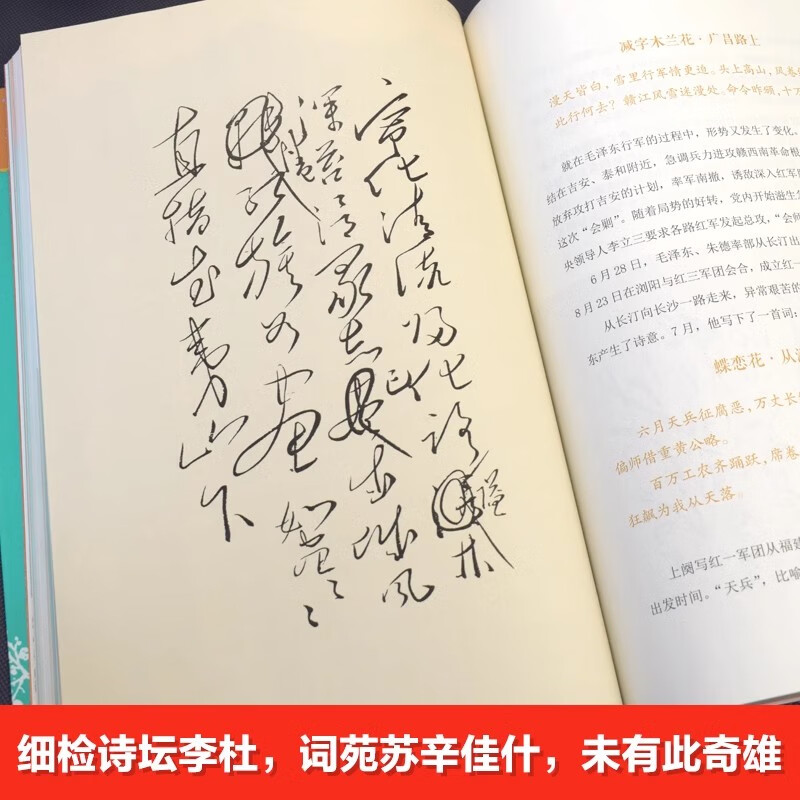 宁化清流归化路隘林
直指武夷山下
减字木兰花·广昌路上
漫天皆白，雪里行军情更迫。头上高山，风卷
此行何去？赣江风雪迷漫处。命令昨颁，十万
就在毛泽东行军的过程中，形势又发生了变化。
结在吉安、泰和附近，急调兵力进攻赣西南革命根
放弃攻打吉安的计划，率军南撤，诱敌深入红军
这次“会剿”。随着局势的好转，党内开始滋生
央领导人李立三要求各路红军发起总攻，“会师
6月28日，毛泽东、朱德率部从长汀出
8月23日在浏阳与红三军团会合，成立红一
从长汀向长沙一路走来，异常艰苦的
东产生了诗意。7月，他写下了一首词：
蝶恋花·从
六月天兵征腐恶，万丈长
偏师借重黄公略。
百万工农齐踊跃，席卷
狂飙为我从天落。
上阕写红一军团从福建
出发时间。“天兵”，比喻
细检诗坛李杜，词苑苏辛佳什，未有此奇雄